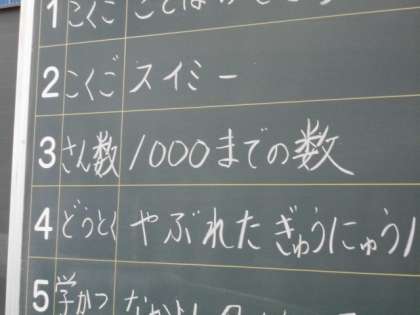 1 こくご ことば
2 こくご スイミー
3 さん数 1000までの数
4 どうとく やぶれたぎゅうにゅう
5 学かつ なかよし